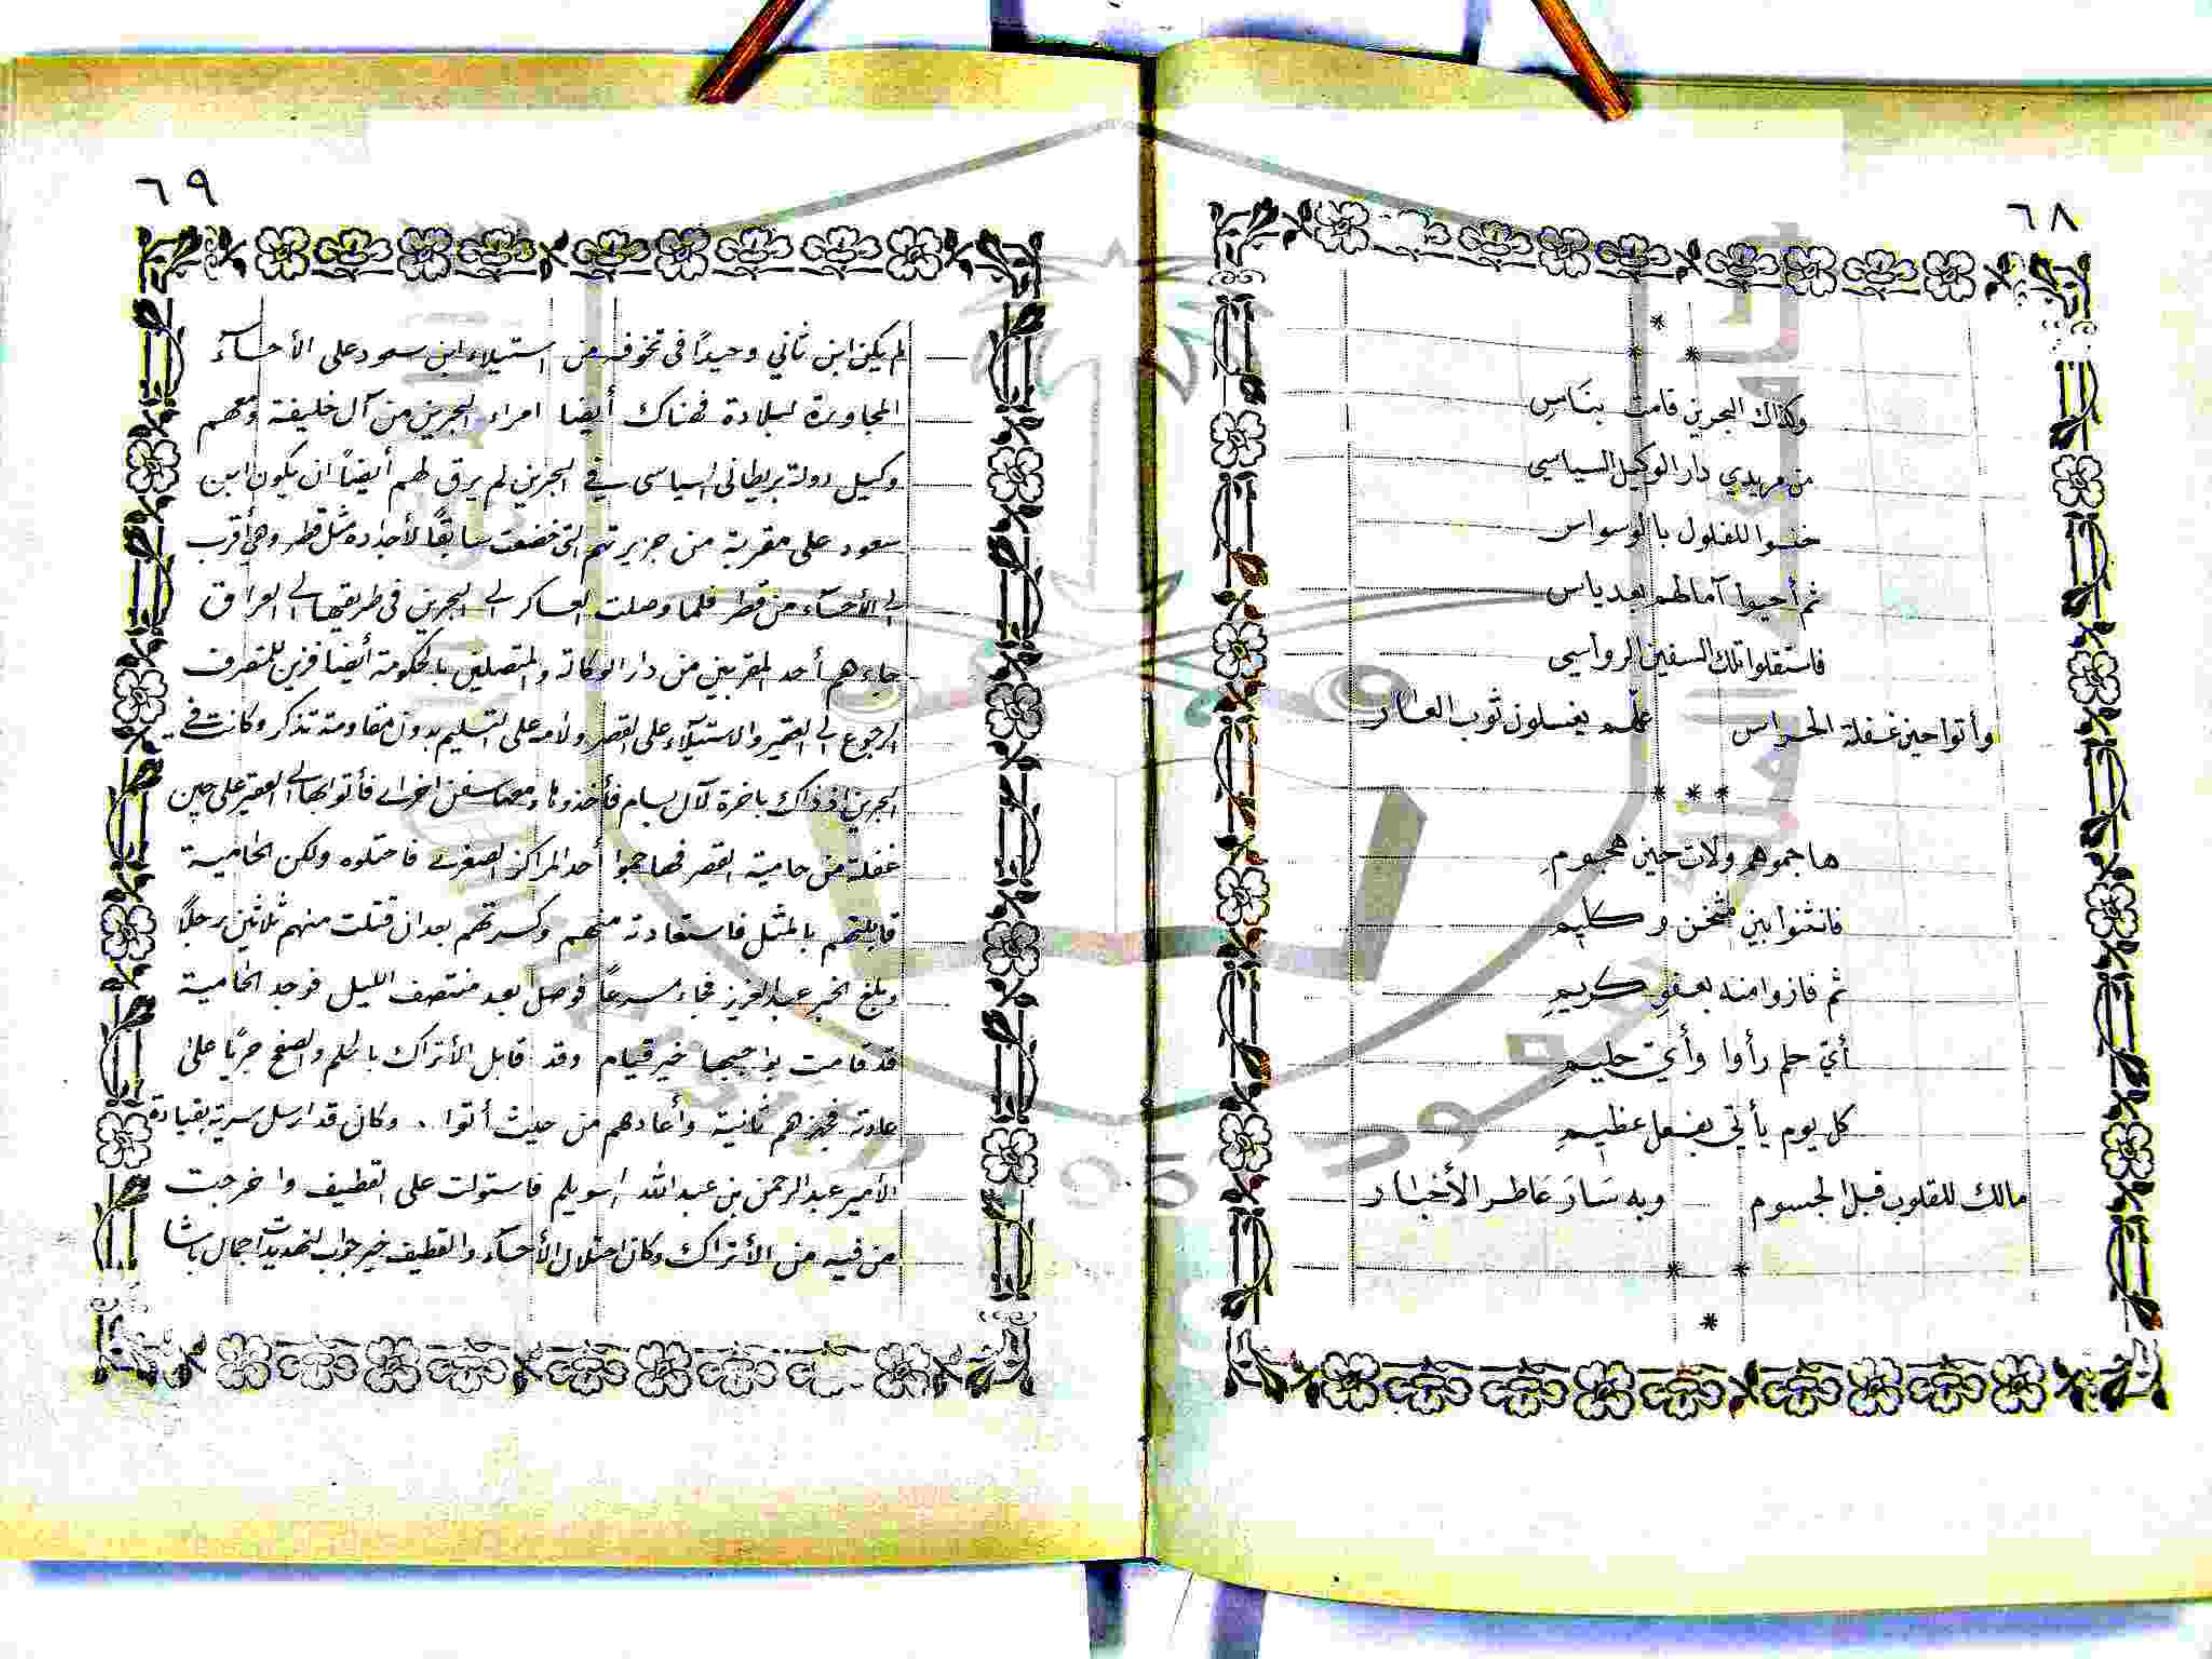 ٦٨
وكذاك البحرين قامت بنَاسِ
من مريدي دار الوكيل السياسي
خنسوا للفلول بالوسواس
ثم أحيوا آمالهم بعد ياس
فاستقلوا تلك السفين الرواسي
وأتوا حين غفلة الحراس علهم يغسلون ثوب العار
هاجموهم ولات حين هجومِ
فانثنوا بين مثخن وكليم
ثم فازوا منه بعفوِ كريمِ
أيّ حلم رأوا وأيّ حليمِ
كل يوم يأتي بفعل عظيمِ
مالك للقلوب قبل الجسوم وبه سَارَ عَاطر الأخبار
٦٩
لم يكن ابن ثاني وحيداً في تخوفه من استيلاء ابن سعود على الأحسآء
المجاورة لبلاده فهناك أيضا امراء البحرين من آل خليفة ومعهم
وكيل دولة بريطاني السياسي في البحرين لم يرق لهم أيضاً ان يكون ابن
سعود على مقربة من جزيرتهم التي خضعت سابقاً لأجداده مثل قطر وهي أقرب
الى الأحسآء من قطر فلما وصلت العساكر الى البحرين في طريقها الى العراق
جاءهم أحد المقربين من دار الوكالة والمتصلين بالحكومة أيضا فزين للمتصرف
الرجوع الى العقير والاستيلاء على القصر ولامه على التسليم بدون مقاومة تذكر وكانت في
البحرين اذ ذاك باخرة لآل بسام فأخذوها ومعها سفن اخرى فأتوا بها الى العقير على حين
غفلة من حامية القصر فهاجموا أحد المراكز الصغرى فاحتلوه ولكن الحامية
قابلتهم بالمثل فاستعادته منهم وكسرتهم بعد ان قتلت منهم ثلاثين رجلاً
وبلغ الخبر عبدالعزيز فجاء مسرعاً فوصل بعد منتصف الليل فوجد الحامية
قد قامت بواجبها خير قيام وقد قابل الأتراك بالحلم والصفح جريًا على
عادته فجهزهم ثانية وأعادهم من حيث أتوا .. وكان قد ارسل سرية بقيادة
الأمير عبدالرحمن بن عبدالله السويلم فاستولت على القطيف واخرجت
من فيه من الأتراك وكان احتلال الأحسآء والقطيف خير جواب لتهديدات جمال باشا